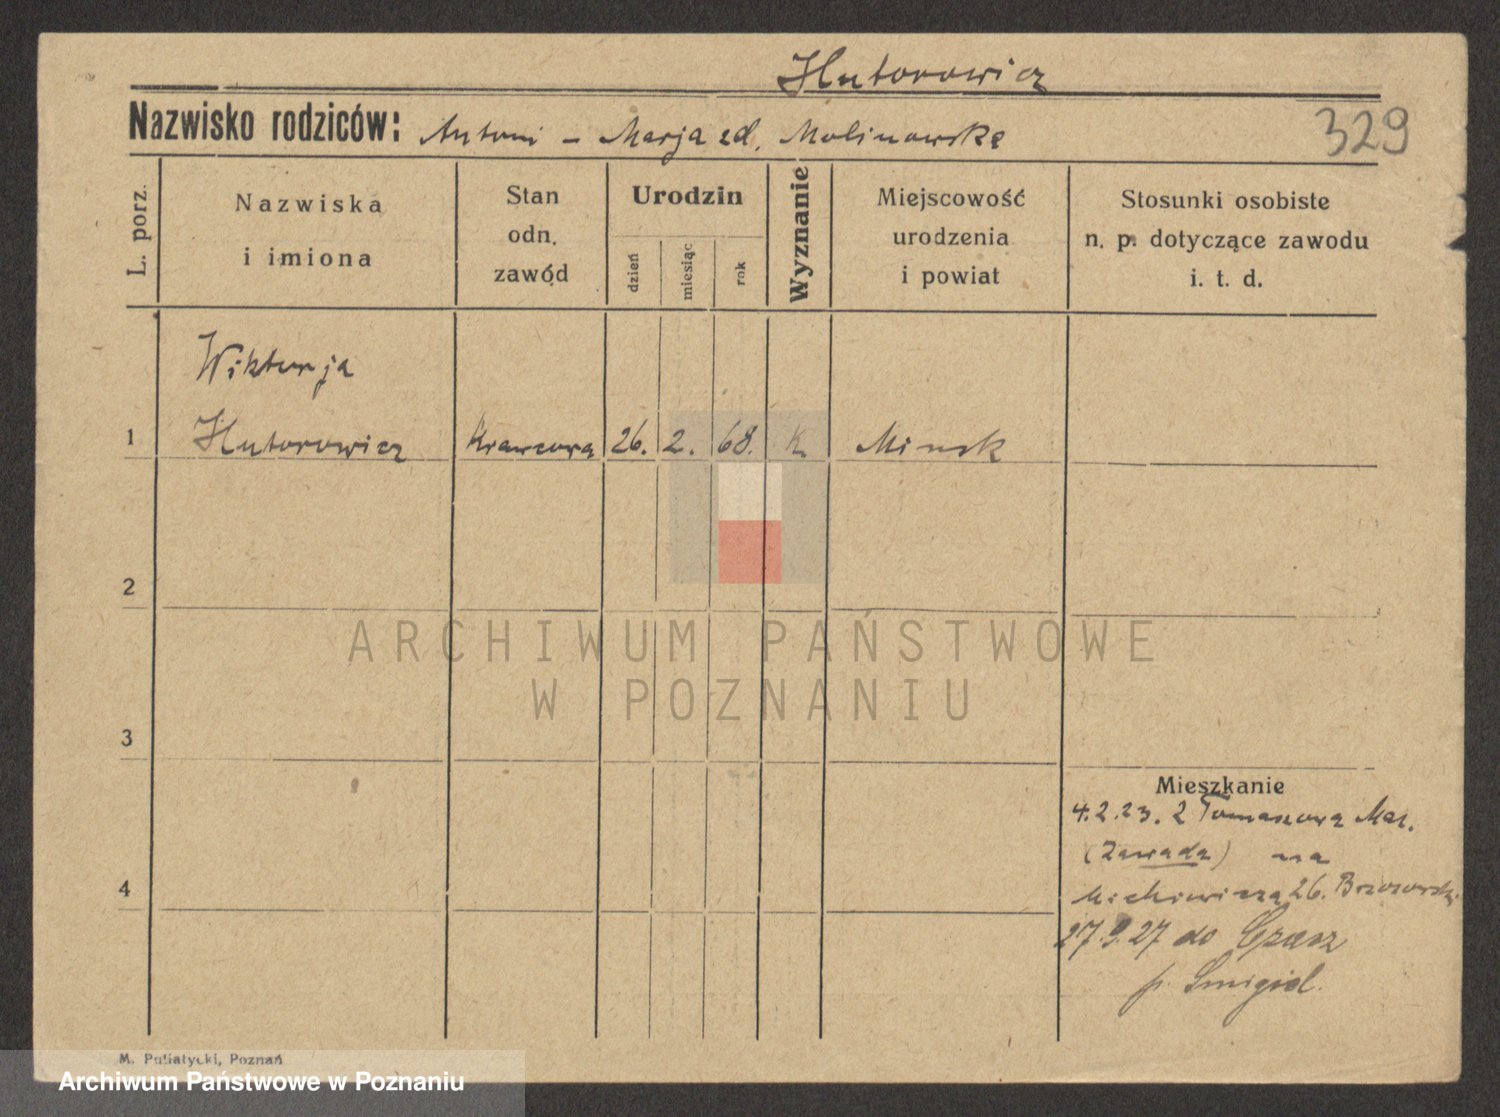 Hutorowicz
Nazwisko rodziców: Antoni - Marja zd. Molinowska
329
L. porz.
Nazwiska
i imiona
Stan
odn.
zawód
Urodzin
dzień
miesiąc
rok
Wyznanie
Miejscowość
urodzenia
i powiat
Stosunki osobiste
n. p. dotyczące zawodu
i. t. d.
Wiktorja
1 Hutorowicz Krawcowa 26. 2. 68. k. Minsk
2
ARCHIWUM PAŃSTWOWE
W POZNANIU
3
Mieszkanie
4.2.23. z Tomaszowa Maz.
(Zawada) na
4
Mickiewicza 26. Brzozowski
27.9.27 do
p. Śmigiel.
M. Putiatycki, Poznań
Archiwum Państwowe w Poznaniu